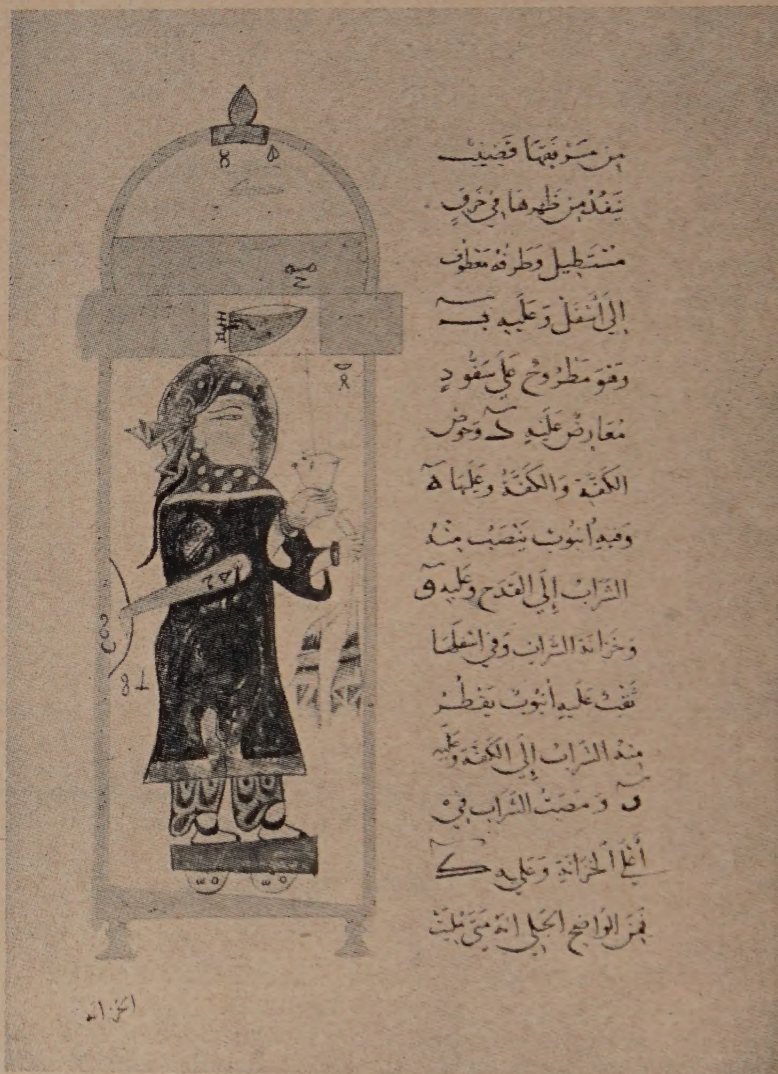 من مرفقها قضيب
ينفذ من ظهرها في خرق
مستطيل وطرفه معطوف
إلى أسفل وعليه ب
وهو مطروح على سفود
معارض عليه د وحوض
الكفة والكفة وعليها ه
وفيه انبوب ينصب منه
الشراب إلى القدح وعليه ق
وخزانة الشراب وفي اسفلها
ثقب عليه أنبوب يقطر
منه الشراب إلى الكفة وعليه
ر ومصب الشراب في
أعلى الخزانة وعليه ك
فمن الواضح الجلي انه متى ملئت
الخزانة